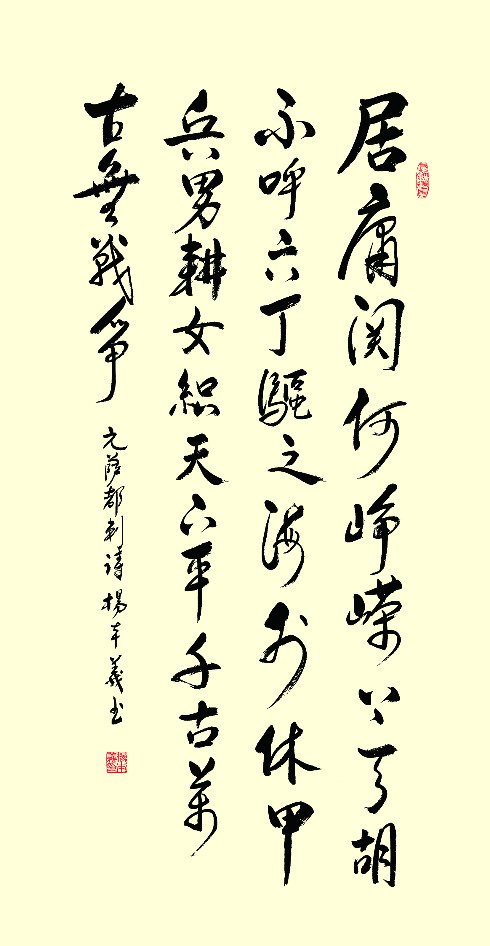 居庸関何峥嵘上天胡
不呼六丁驅之海外休甲
兵男耕女織天下平千古萬
古無戰爭 元薩都剌詩 楊本義书